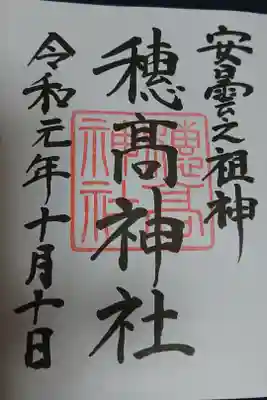 安曇之祖神
穂髙神社
穂髙神社
令和元年十月十日